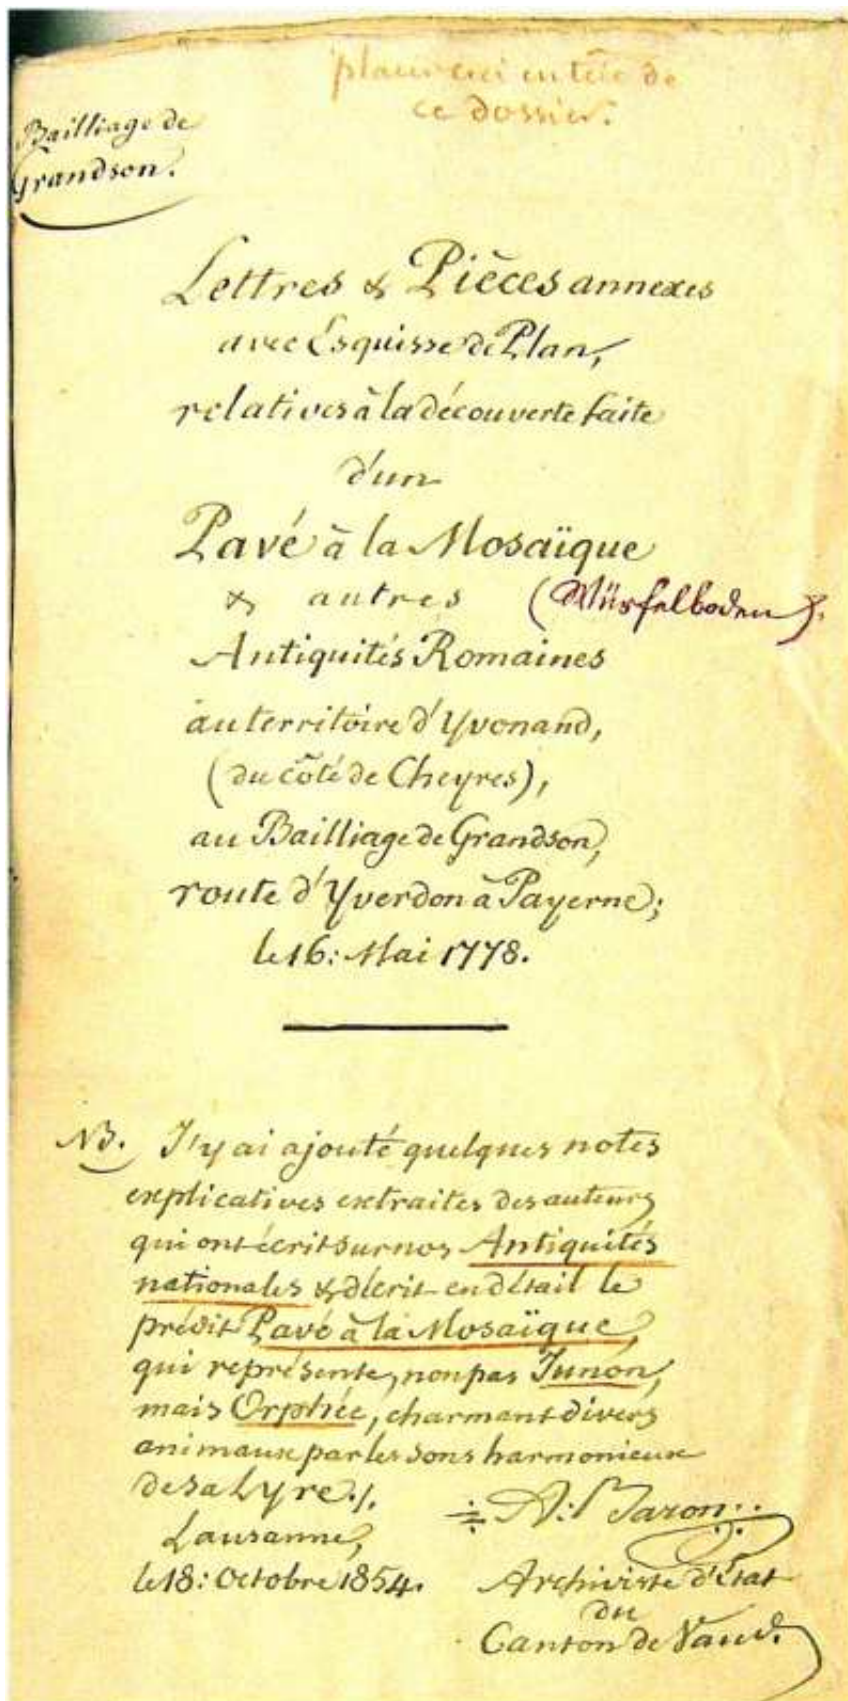 ce dossier.
Bailliage de
Grandson.
Lettres & Pièces annexes
avec Esquisse de Plan,
relatives à la découverte faite
d'un
Pavé à la Mosaïque
& autres (Würfelboden).
Antiquités Romaines
au territoire d'Yvonand,
(du côté de Cheyres),
au Bailliage de Grandson,
route d'Yverdon à Payerne;
le 16: Mai 1778.
NB. J'y ai ajouté quelques notes
explicatives extraites des auteurs
qui ont écrit sur nos Antiquités
nationales & décrit en détail le
prédit Pavé à la Mosaïque,
qui représente, non pas Junon,
mais Orphée, charmant divers
animaux par les sons harmonieux
de sa Lyre./.
Lausanne,
le 18: Octobre 1854.
A: Baron
Archiviste d'État
du
Canton de Vaud.